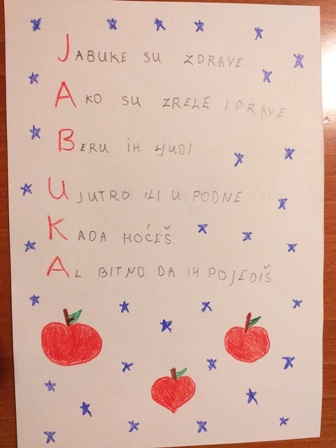 JABUKE SU ZDRAVE
AKO SU ZRELE I PRAVE
BERU IH LJUDI
UJUTRO ILI U PODNE
KADA HOĆEŠ
AL BITNO DA IH POJEDIŠ